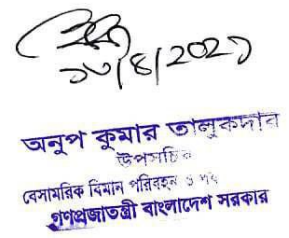 ১৩/৪/২০২১
অনুপ কুমার তালুকদার
উপসচিব
বেসামরিক বিমান পরিবহন ও
গণপ্রজাতন্ত্রী বাংলাদেশ সরকার